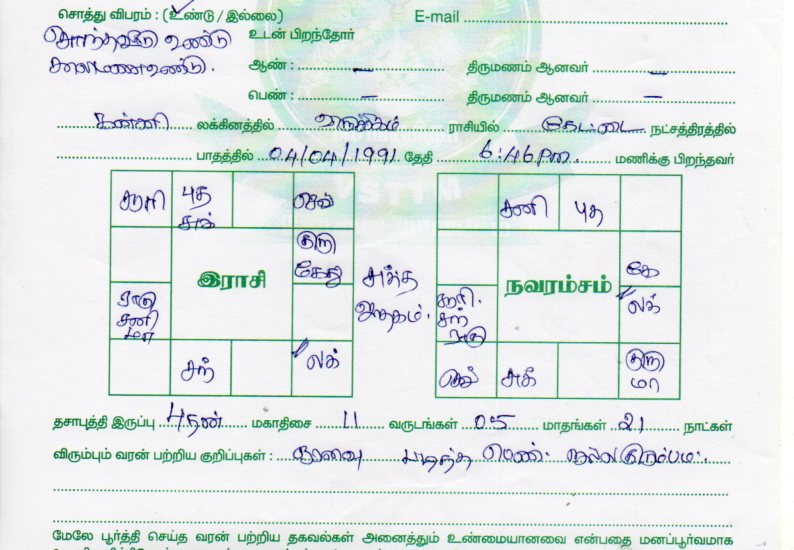 சொத்து விபரம் : (உண்டு / இல்லை) E-mail
சொந்தவீடு உண்டு உடன் பிறந்தோர்
காலைமனை உண்டு. ஆண் : – திருமணம் ஆனவர் –
பெண் : – திருமணம் ஆனவர் –
கன்னி லக்கினத்தில் விருச்சிகம் ராசியில் கேட்டை நட்சத்திரத்தில்
பாதத்தில் 04/04/1991 தேதி 6:46 Pm. மணிக்கு பிறந்தவர்
சூரி புத செவ் சனி புத
சுக்
குரு
கேது கே
இராசி சுத்த நவரம்சம்
ராகு சூரி. லக்
சனி ஜாதகம். சந்
மா ராகு
சந் லக் செவ் சுக் குரு
மா
தசாபுத்தி இருப்பு புதன் மகாதிசை 11 வருடங்கள் 05 மாதங்கள் 21 நாட்கள்
விரும்பும் வரன் பற்றிய குறிப்புகள் : படித்த பெண். நல்ல குடும்பம்.
மேலே பூர்த்தி செய்த வரன் பற்றிய தகவல்கள் அனைத்தும் உண்மையானவை என்பதை மனப்பூர்வமாக